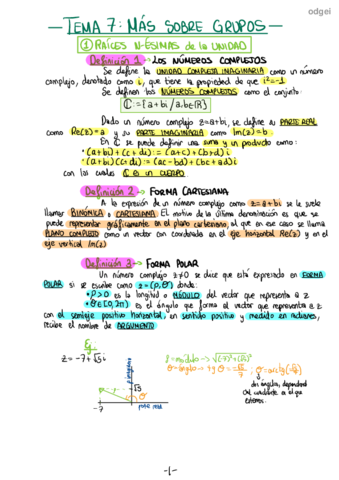 odgei
— TEMA 7: MÁS SOBRE GRUPOS —
① RAÍCES N-ÉSIMAS de la UNIDAD
Definición 1 → LOS NÚMEROS COMPLEJOS
Se define la UNIDAD COMPLEJA IMAGINARIA como un número
complejo, denotado como i, que tiene la propiedad de que i²=-1.
Se definen los NÚMEROS COMPLEJOS como el conjunto:
ℂ:={a+bi / a,b∈ℝ}
Dado un número complejo z=a+bi, se define su PARTE REAL
como Re(z)=a y su PARTE IMAGINARIA como Im(z)=b.
En ℂ se puede definir una suma y un producto como:
• (a+bi)+(c+di):=(a+c)+(b+d)i
• (a+bi)(c+di):=(ac-bd)+(bc+ad)i
con los cuales ℂ es un CUERPO
Definición 2 → FORMA CARTESIANA
A la expresión de un número complejo como z=a+bi se le suele
llamar BINÓMICA o CARTESIANA. El motivo de la última denominación es que se
puede representar gráficamente en el plano cartesiano, al que en ese caso se llama
PLANO COMPLEJO como un vector con coordenadas en el eje horizontal Re(z) y en el
eje vertical Im(z)
Definición 3 → FORMA POLAR
Un número complejo z≠0 se dice que está expresado en FORMA
POLAR si se escribe como z=(ρ,θ) donde:
• ρ>0 es la longitud o MÓDULO del vector que representa a z
• θ∈[0,2π) es el ángulo que forma el vector que representa a z
con el semieje positivo horizontal, en sentido positivo y medido en radianes,
recibe el nombre de ARGUMENTO
Ej
z=-7+√5i
ρ=módulo -> √(-7)²+(√5)²
θ=ángulo -> tg θ = -√5/7
un ángulo, dependerá
del cuadrante en el que
estemos.
√5
θ
-7
parte real
-1-